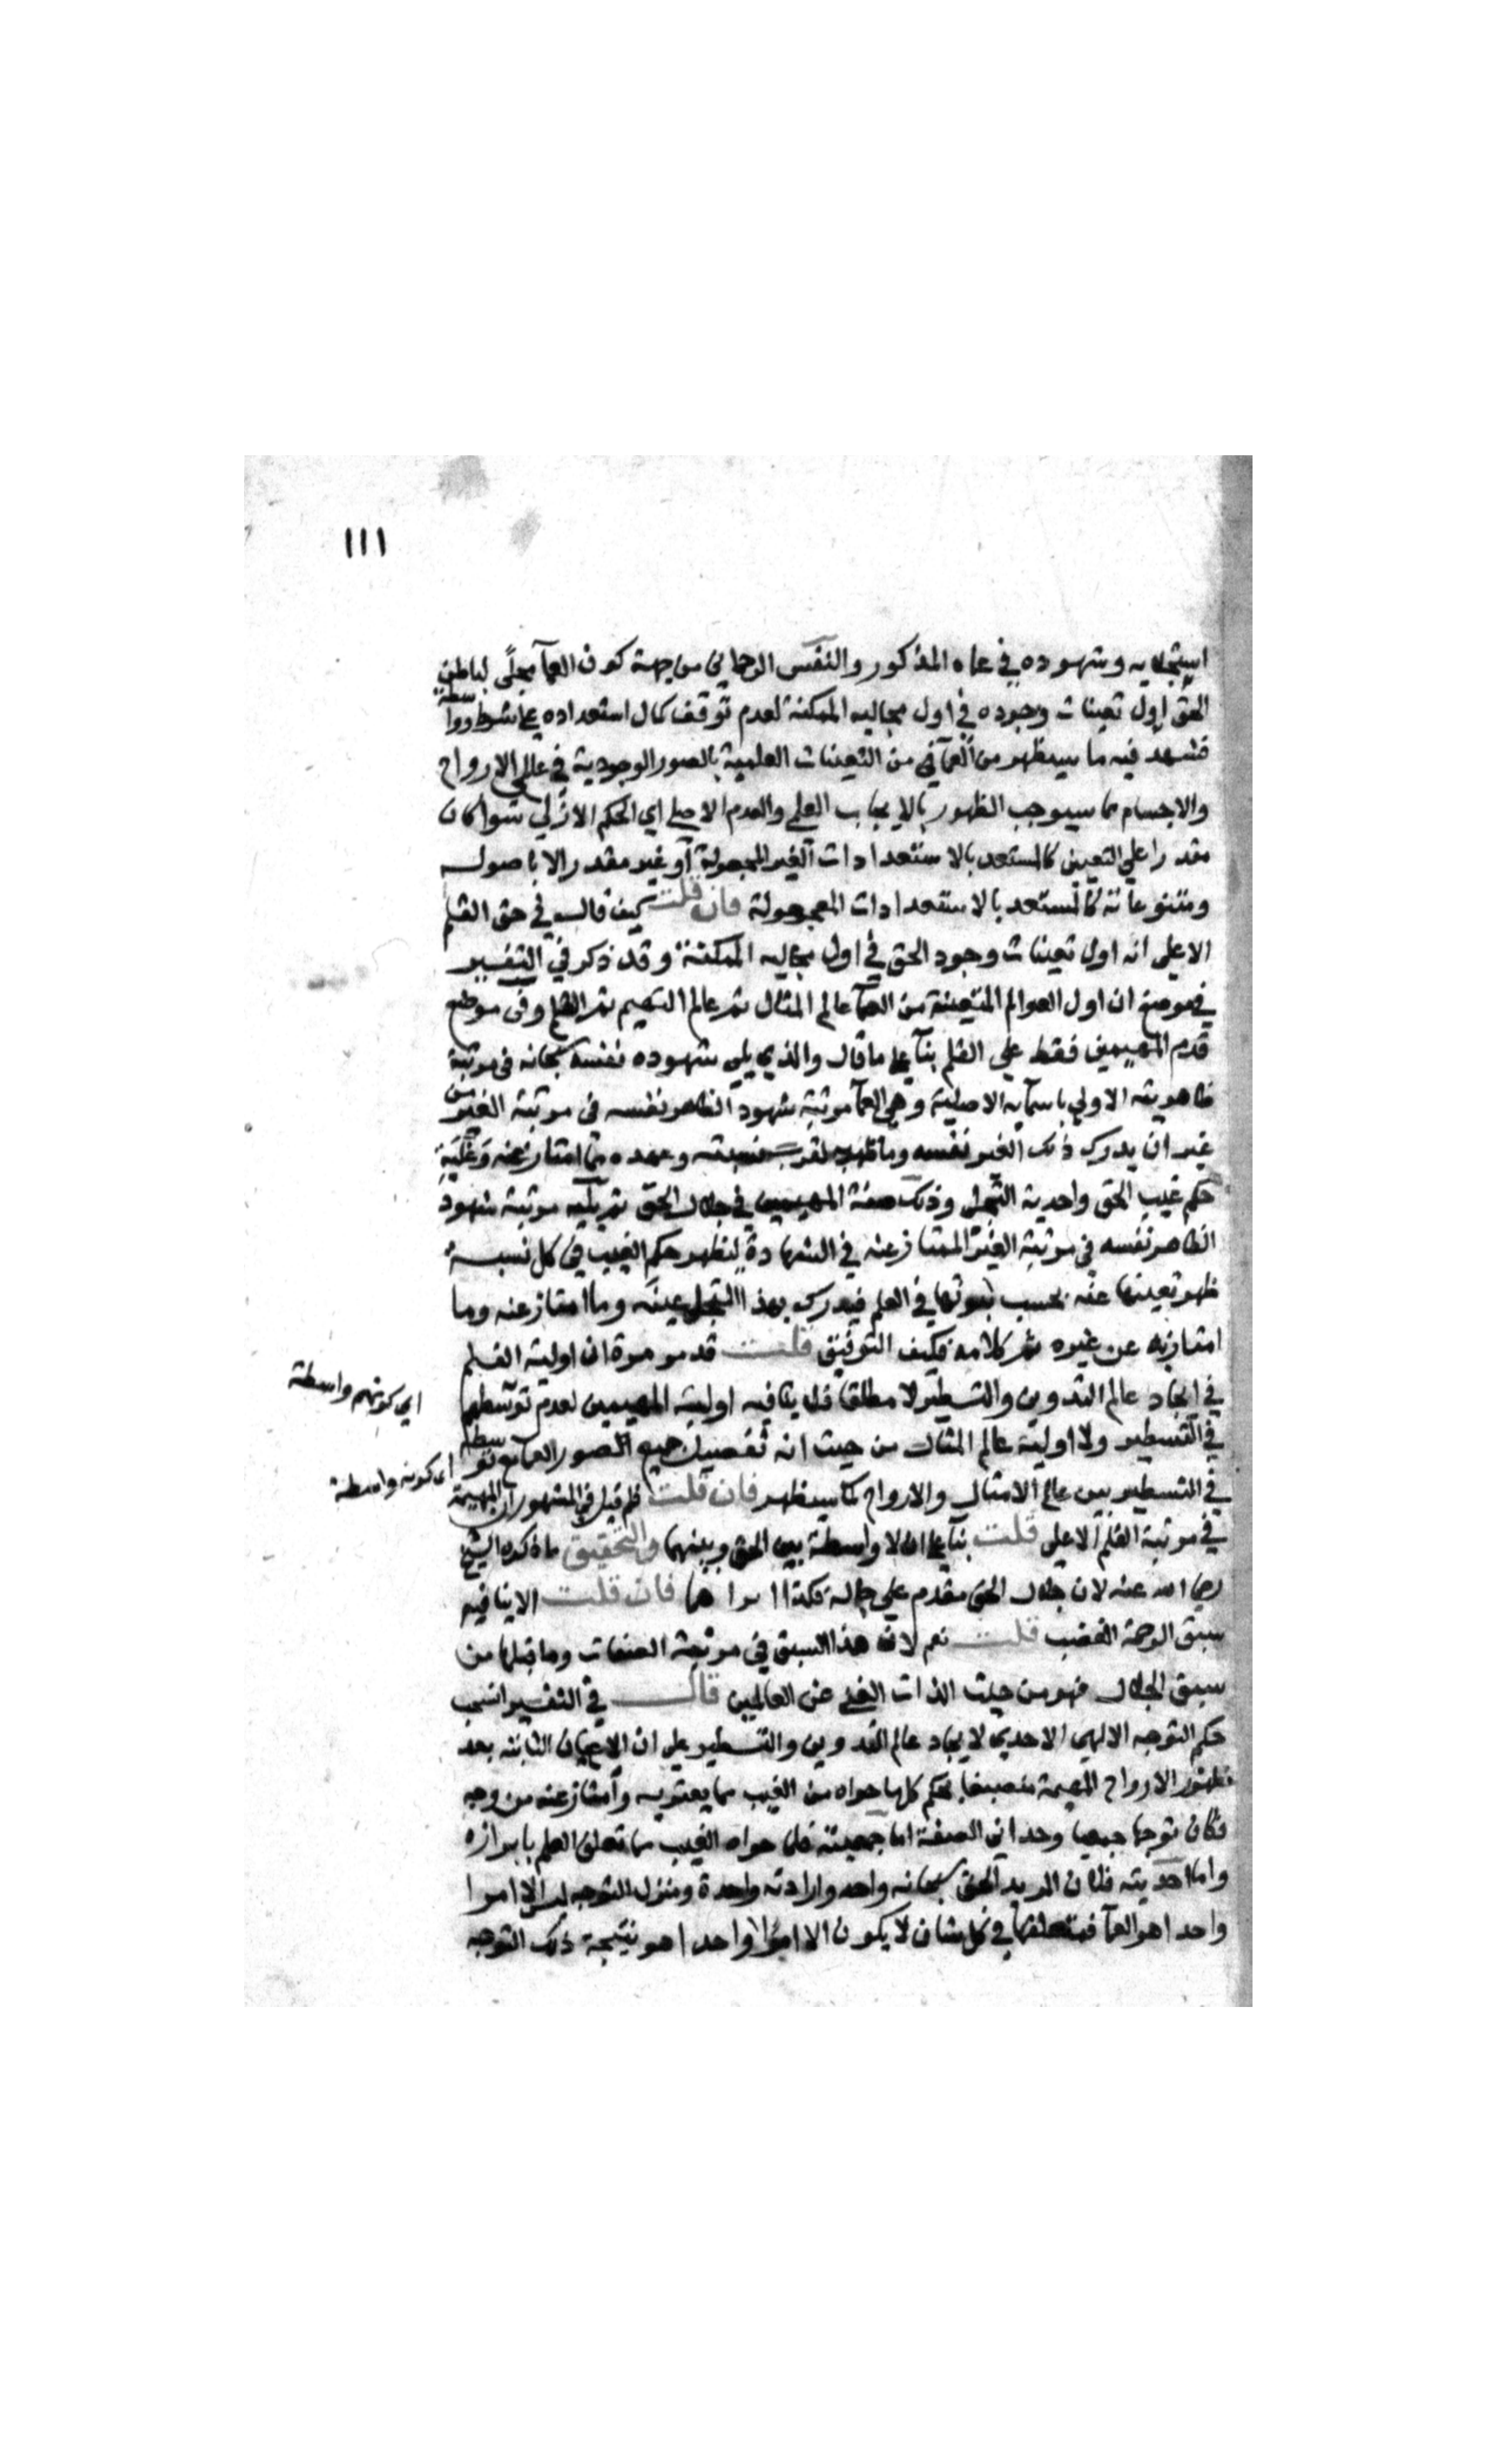 ١١١
استجلائه وشهوده في عماه المذكور والنفس الرحماني من جهة كون العمآ مجلًى لباطن
الحق اول تعينات وجوده في اول مجاليه الممكنة لعدم توقف كمال استعداده على شرط وواسطة
فشهد فيه ما سيظهر من العمآ في من التعينات العلمية بالصور الوجودية في عالمي الارواح
والاجسام مما سيوجب الظهور بالايجاب العلمي والعدم الاصلي اي الحكم الازلي سوا كان
مقدرا على التعيين كالمستعد بالاستعدادات الغير المجعولة او غير مقدر الا باصوله
ومتنوعاته كالمستعد بالاستعدادات المجعولة فان قلت كيف قال في حق القلم
الاعلى انه اول تعينات وجود الحق في اول مجاليه الممكنة وقد ذكر في التفسير
في موضع ان اول العوالم المتعينة من العمآ عالم المثال ثم عالم التهيم ثم القلم وفي موضع
قدم المهيمين فقط على القلم بنآ على ما قال والذي يلي شهوده نفسه سبحانه في مرتبة
ظاهريته الاولى باسمآيه الاصلية وهي العمآ مرتبة شهود الظاهر نفسه في مرتبة الغير من
غير ان يدرك ذلك الغير نفسه وما ظهر لقرب نسبته وعهده مما امتاز عنه وغلبة
حكم غيب الحق واحدية التجلي وذلك صفة المهيمين في جلال الحق ثم يليه مرتبة شهود
الظاهر نفسه في مرتبة الغير الممتاز عنه في الشهادة ليظهر حكم الغيب في كل نسبة
ظهر تعينها عنه بحسب ثبوتها في العلم فيدرك بهذا التجلي عينه وما امتاز عنه وما
امتاز به عن غيره ثم كلامه فكيف التوفيق قلت قد مر مرة ان اولية القلم
في ايجاد عالم التدوين والتسطير لا مطلقا فلا ينافيه اولية المهيمين لعدم توسطهم
اي كونهم واسطة
في التسطير ولا اولية عالم المثال من حيث انه تفصيل جميع الصور العمآ مع توسطه
اي كونه واسطة
في التسطير بين عالم الامثال والارواح كما سيظهر فان قلت فلم قيل في المشهور ان المهيمة
في مرتبة القلم الاعلى قلت بنآ على ان لا واسطة بين الحق وبينهما والتحقيق ما ذكره الشيخ
رضي الله عنه لان جلال الحق مقدم على جماله فكذا اثراهما فان قلت الا ينافيه
سبق الرحمة الغضب قلت نعم لان هذا السبق في مرتبة الصفات وما قبلها من
سبق الجلال فهو من حيث الذات الغني عن العالمين قال في التفسير انسحب
حكم التوجه الالهي الاحدي لايجاد عالم التدوين والتسطير على ان الاعيان الثابته بعد
ظهور الارواح المهيمة منصبغا بحكم كل ما حواه من الغيب مما يحتويه وامتاز عنه من وجه
فكان توجها جمعيا وحداني الصفة اما جمعيته فلما حواه الغيب مما تعلق العلم بابرازه
واما احديته فلان المريد الحق سبحانه واحد وارادته واحدة ومنزل التوجه ليس الا امرا
واحدا هو العمآ فمتعلقها في كل شان لا يكون الا امرا واحدا هو نتيجة ذلك التوجه